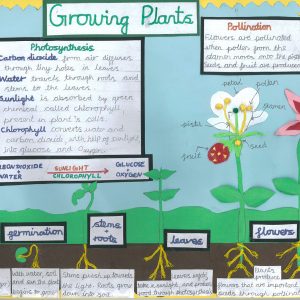 Growing Plants
Photosynthesis
Carbon dioxide from air diffuses
through tiny holes in leaves.
Water travels through roots and
stems to the leaves.
Sunlight is absorbed by green
chemical called chlorophyll
present in plant's cells.
Chlorophyll converts water and
carbon dioxide, with help of sunlight,
into glucose and Oxygen.
CARBON DIOXIDE
WATER
SUNLIGHT
CHLOROPHYLL
GLUCOSE
+ OXYGEN
Pollination
Flowers are pollinated
when pollen from the
stamen moves from the
and fruit are produced
petal
pollen
stamen
pistil
seed
fruit
germination
stems
roots
leaves
flowers
With water, soil
and sun the plant
begins to grow
Stems push up towards
the light. Roots grow
down into soil.
Leaves
take in sunlight, and produce
food through photosynthesis
Plants
produce
flowers that are important
seeds through pollination